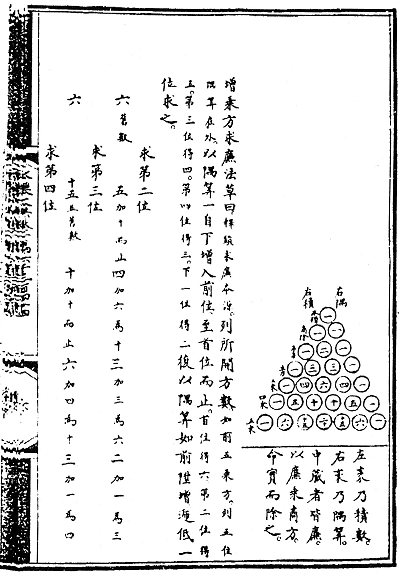 右隅
左積
一
一 一
一 二 一
一 三 三 一
一 四 六 四 一
一 五 十 十 五 一
一 六 十五 二十 十五 六 一
左袤乃積數。
右袤乃隅算。
中藏者皆廉。
以廉乘商方。
命實而除之。
增乘方求廉法草曰釋鎖求廉本源。列所開方數如前五乘方。列五位
隅算在外。以隅算一自下增入前位。至首位而止。首位得六。第二位得
五。第三位得四。第四位得三。下一位得二。復以隅算如前陞增遞低一
位求之。
求第二位
六舊數 五加十而止 四加六為十 三加三為六 二加一為三
求第三位
六 十五並舊數 十加十而止 六加四為十 三加一為四
求第四位